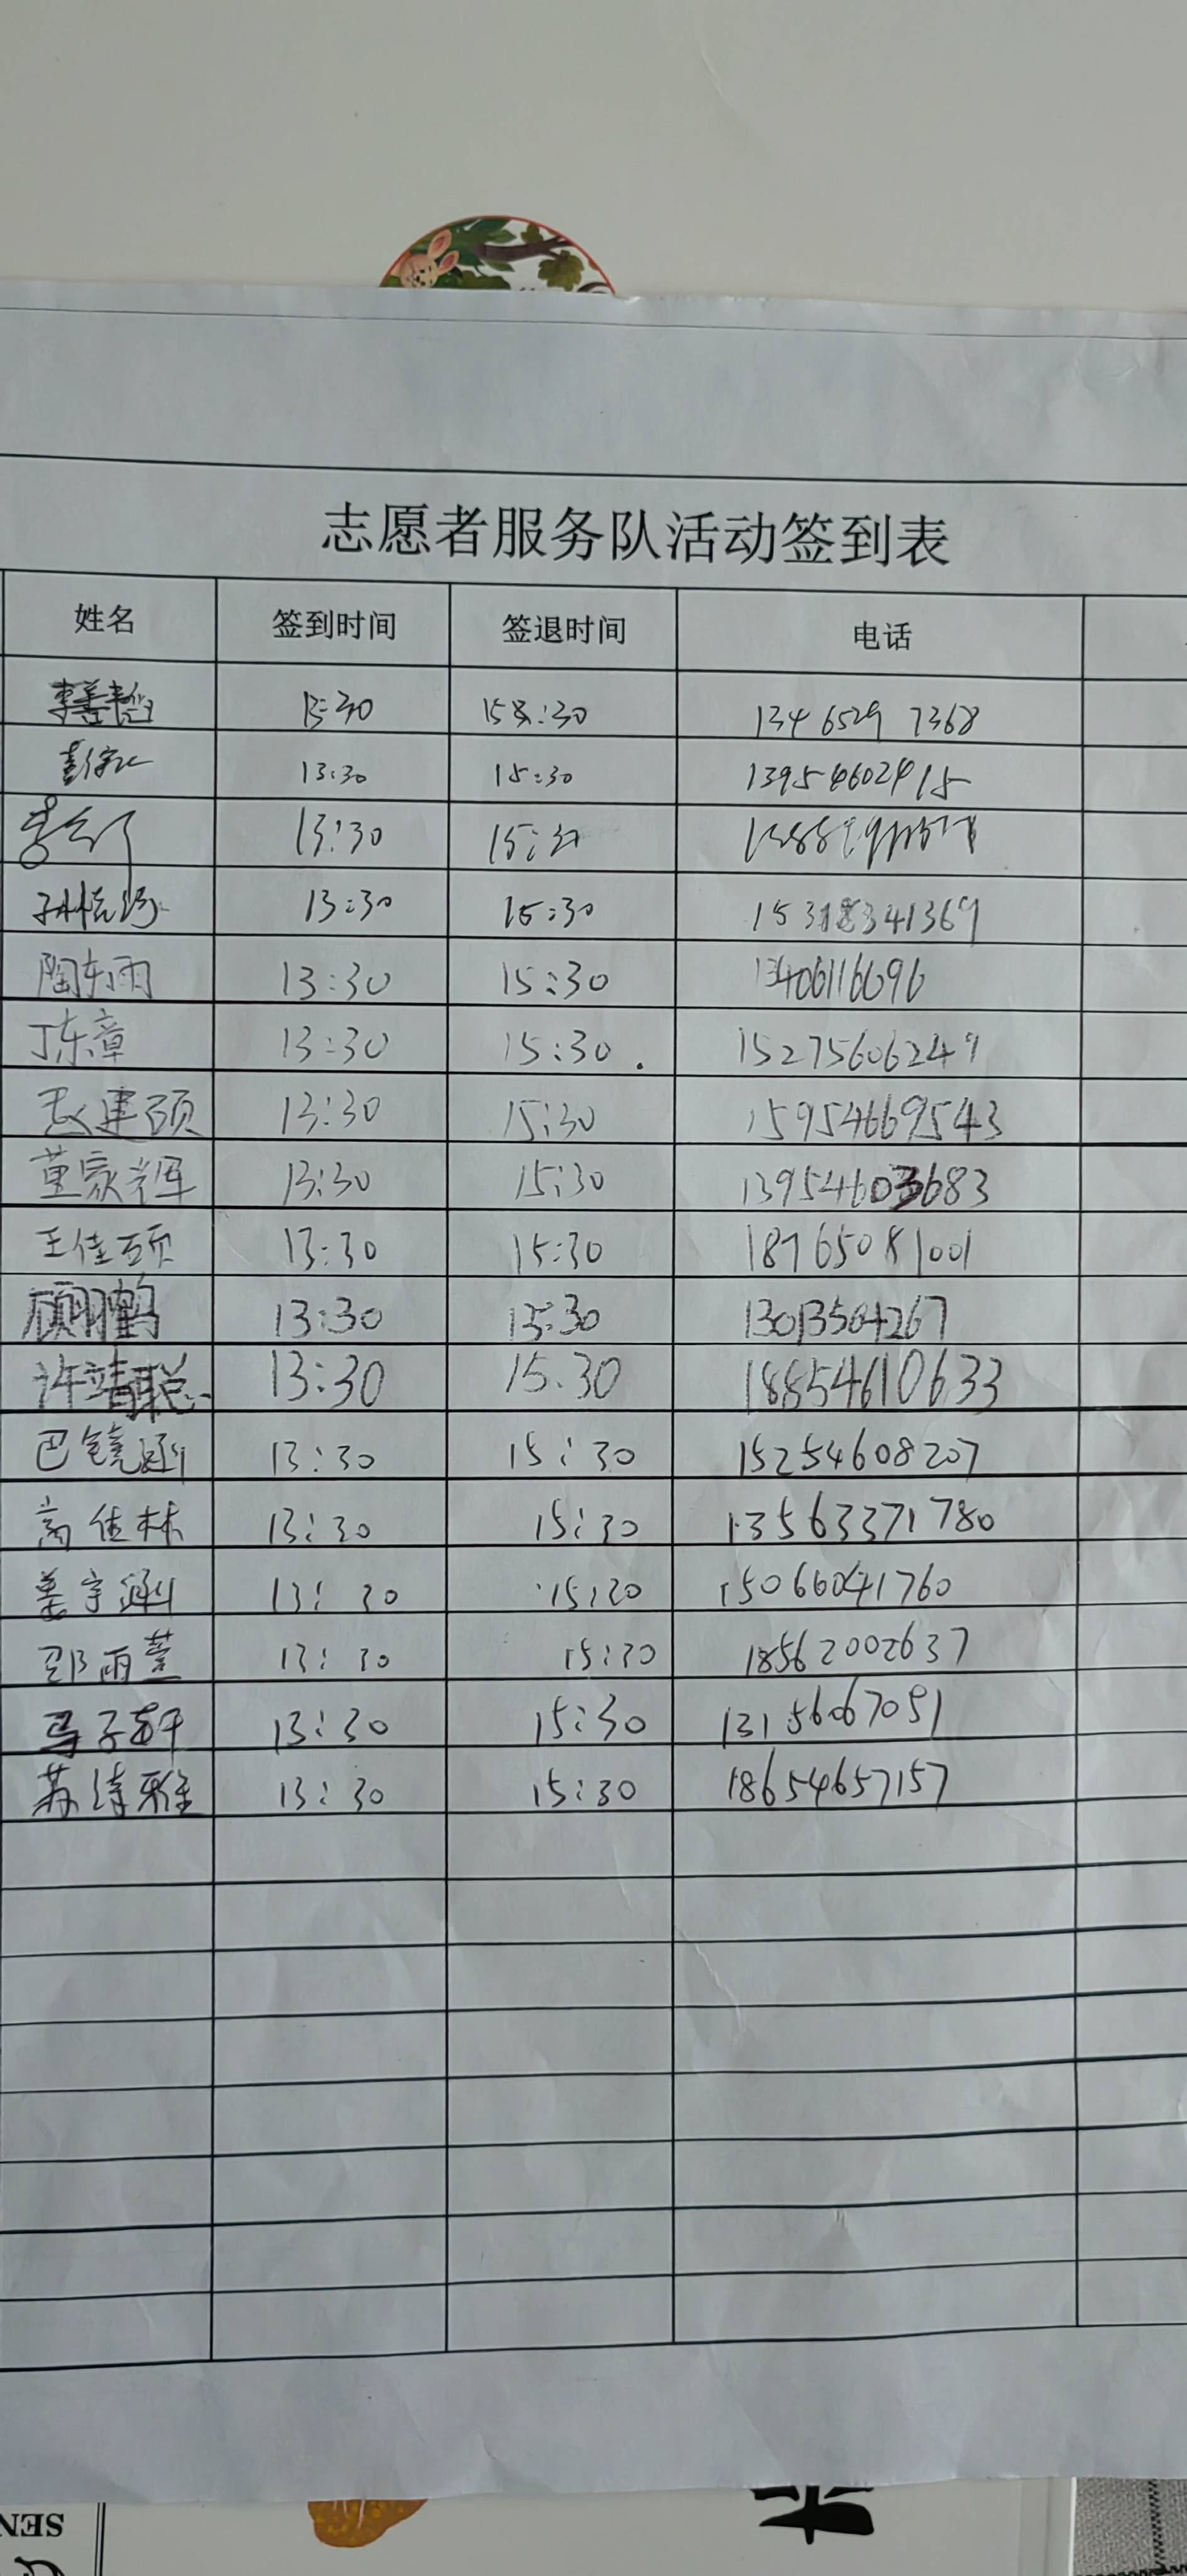 志愿者服务队活动签到表
姓名 签到时间 签退时间 电话
13:30 15:30 13465297368
13:30 15:30 13954602415
13:30
13:30 15:30 15318341369
陶东雨 13:30 15:30 13406116696
丁东章 13:30 15:30 15275606249
建硕 13:30 15:30 15954669543
董家辉 13:30 15:30 13954603683
王佳硕 13:30 15:30 18765081001
顾翔鹤 13:30 15:30 13013504267
许靖聪 13:30 15.30 18854610633
巴镜涵 13:30 15:30 15254608207
高佳林 13:30 15:30 13563371780
宇涵 13:30 15:30 15066041760
邵雨萱 13:30 15:30 18562002637
马子轩 13:30 15:30 13156067051
苏诗雅 13:30 15:30 18654657157
SEN